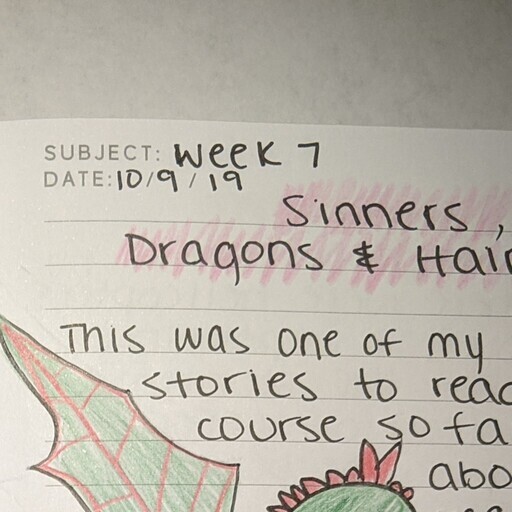 SUBJECT: Week 7
DATE: 10/9/19
Sinners,
Dragons &
This was one of my
stories to
course so